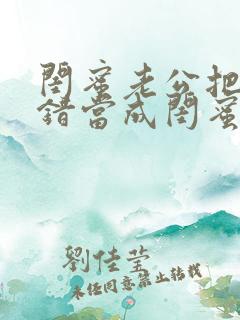 閨蜜老公把
錯當成閨蜜
劉佳瑩
未經同意禁止轉載